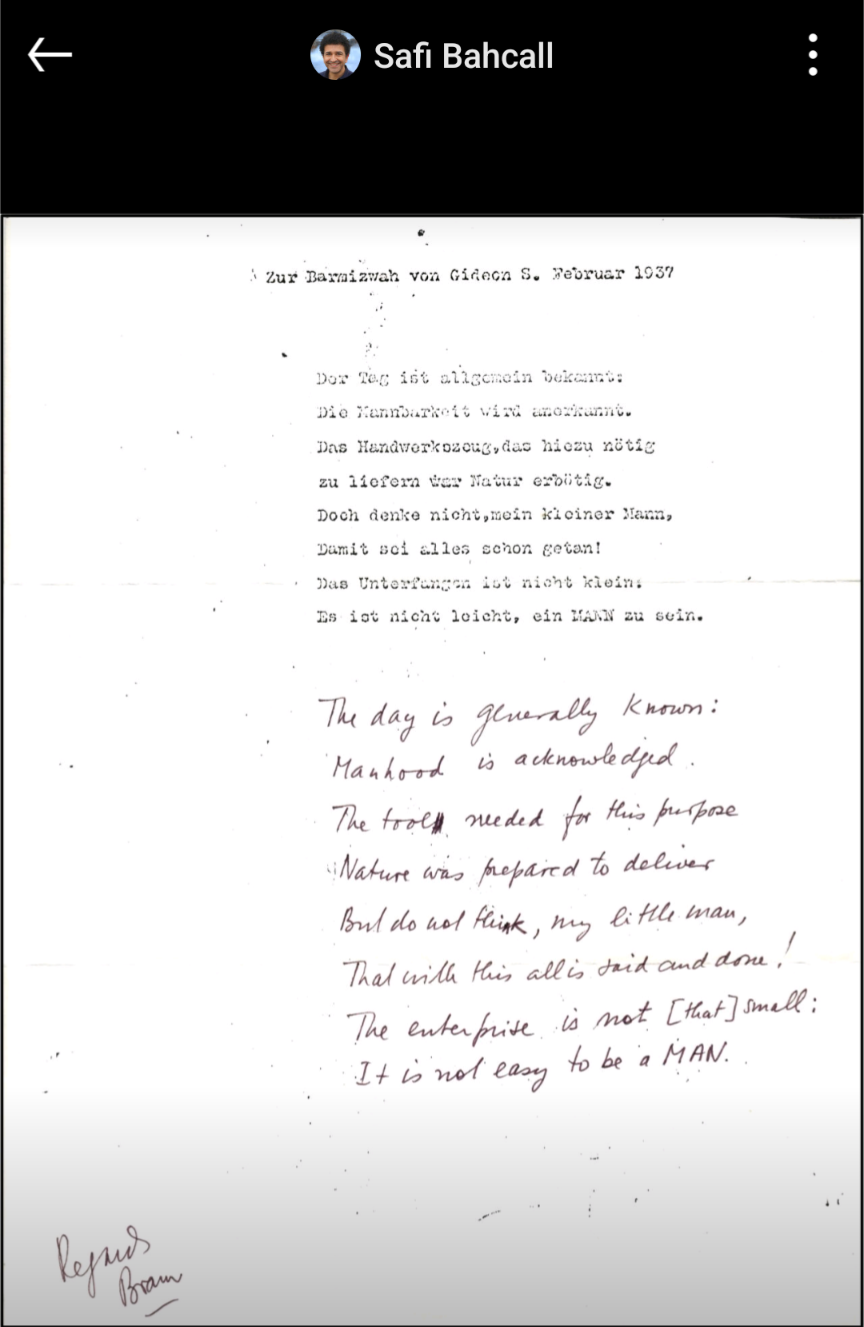 Safi Bahcall
Zur Barmizwah von Gideon S. Februar 1937
Der Tag ist allgemein bekannt:
Die Mannbarkeit wird anerkannt.
Das Handwerkszeug,das hiezu nötig
zu liefern war Natur erbötig.
Doch denke nicht,mein kleiner Mann,
Damit sei alles schon getan!
Das Unterfangen ist nicht klein:
Es ist nicht leicht, ein MANN zu sein.
The day is generally known:
Manhood is acknowledged.
The tools needed for this purpose
Nature was prepared to deliver
But do not think, my little man,
That with this all is said and done!
The enterprise is not [that] small:
It is not easy to be a MAN.
Regards
Bram